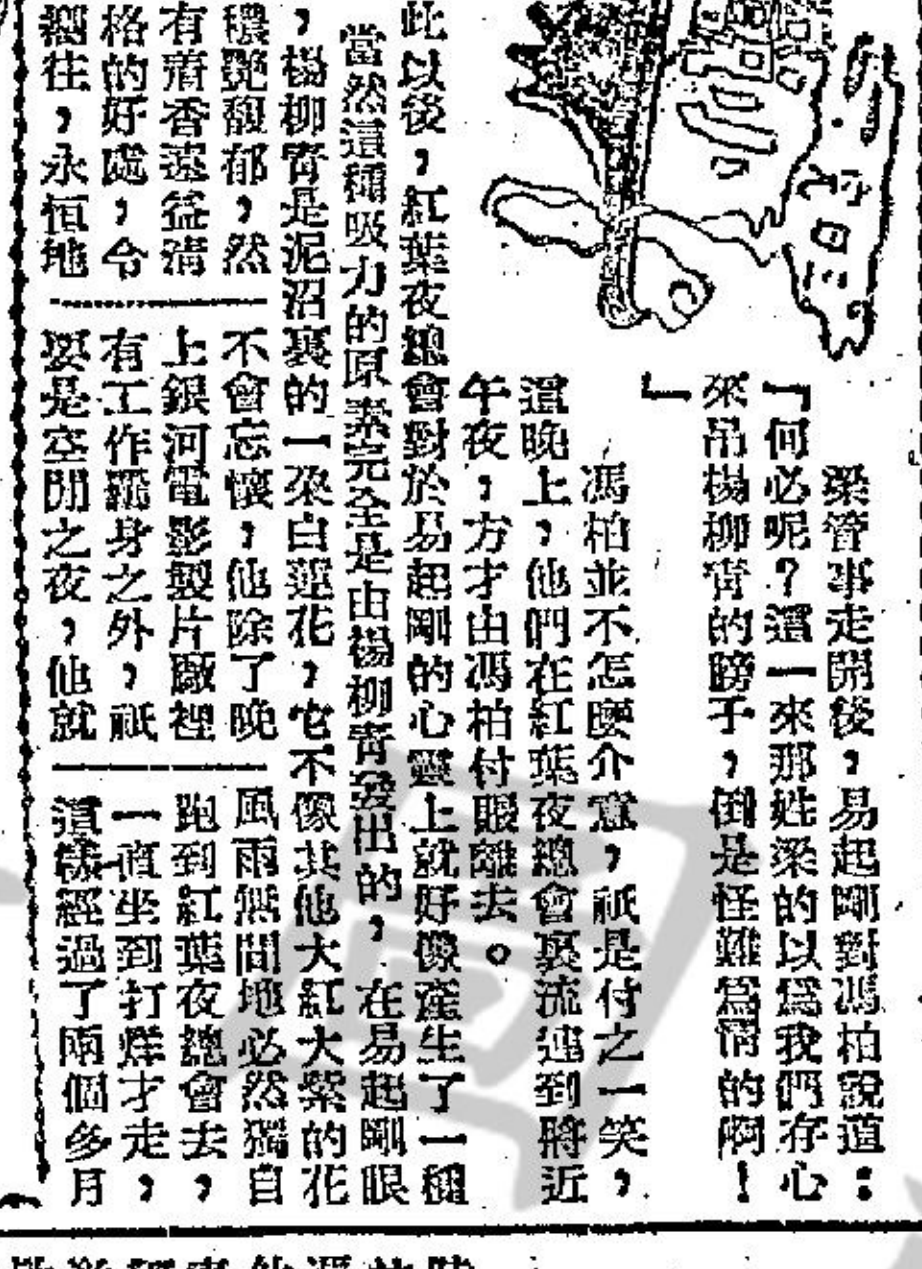 梁管事走開後，易起剛對馮柏說道：
「何必呢？這一來那姓梁的以爲我們存心
來吊楊柳青的膀子，倒是怪難爲情的啊！
」
馮柏並不怎麽介意，祇是付之一笑，
這晚上，他們在紅葉夜總會裏流連到將近
午夜，方才由馮柏付賬離去。
此以後，紅葉夜總會對於易起剛的心靈上就好像產生了一種
當然這種吸力的原素完全是由楊柳青發出的，在易起剛眼
，楊柳青是泥沼裏的一朶白蓮花，它不像其他大紅大紫的花
穠艷馥郁，然
有淸香遠益淸
格的好處，令
往，永恒地
不會忘懷，他除了晚
上銀河電影製片廠裡
有工作羈身之外，祇
要是空閒之夜，他就
風雨無間地必然獨自
跑到紅葉夜總會去，
一直坐到打烊才走，
這樣經過了兩個多月